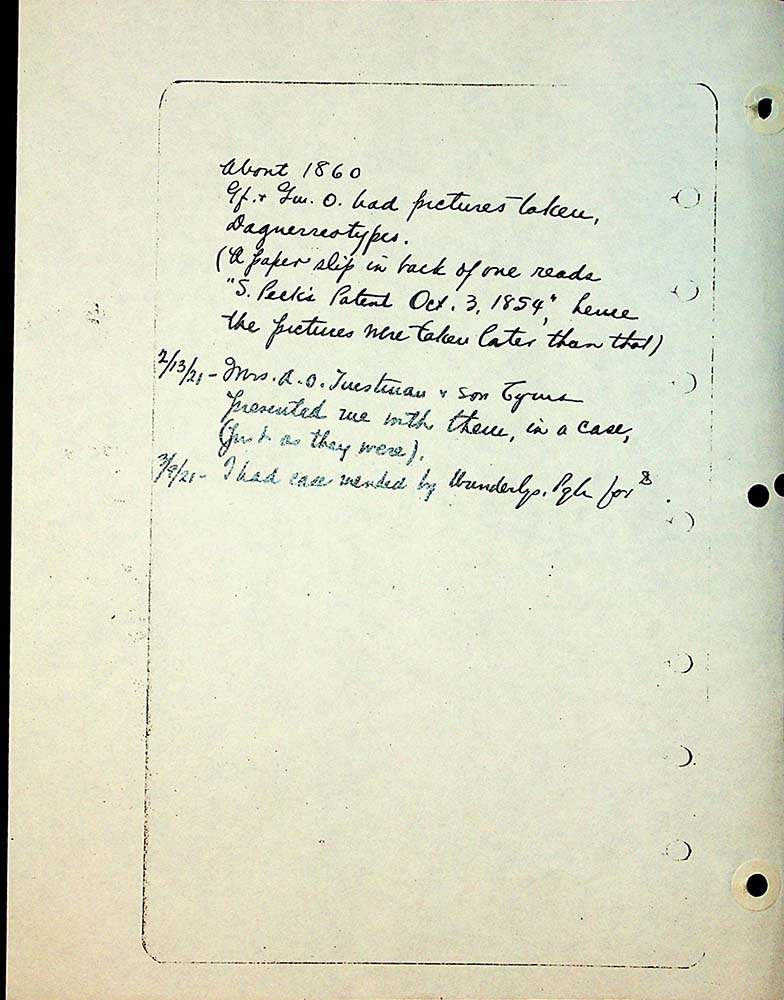 About 1860
Gf. & Gm. O. had pictures taken,
Daguerreotypes.
(A paper slip in back of one reads
"S. Peck's Patent Oct. 3, 1854," hence
the pictures were taken later than that)
2/13/21 - Mrs. A. O. & son Cyrus
presented me with them, in a case,
(Just as they were).
3/9/21 - I had case mended by Wunderlys, Pgh for $ .